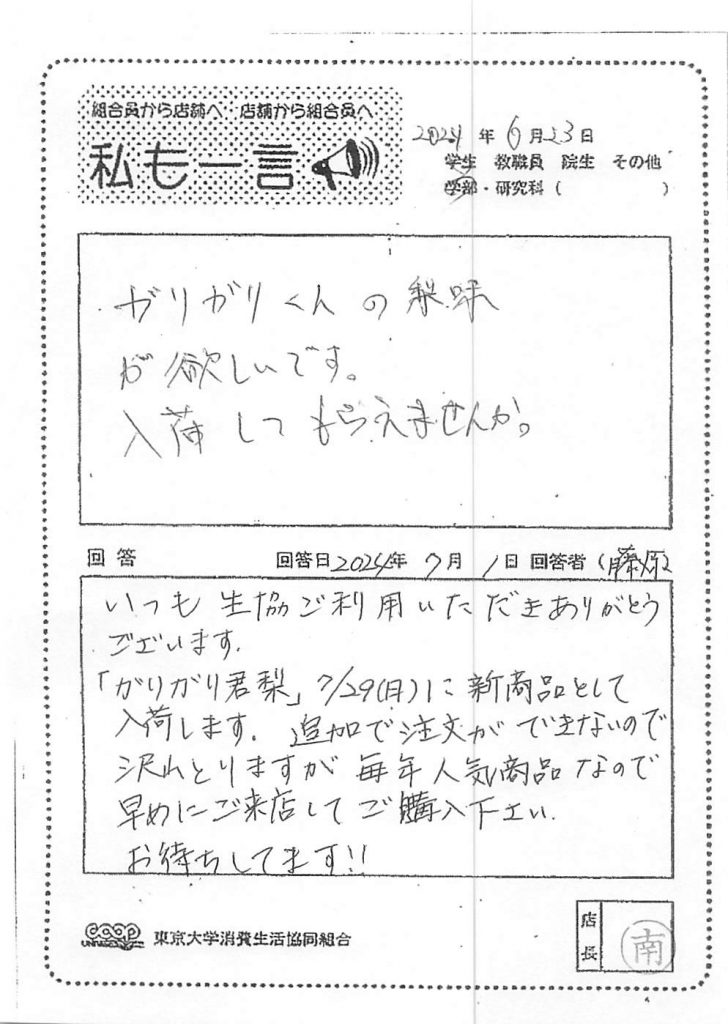 組合員から店舗へ・店舗から組合員へ
私も一言
2024年6月23日
学生 教職員 院生 その他
学部・研究科（ ）
ガリガリくんの梨味
が欲しいです。
入荷してもらえませんか。
回答 回答日2024年7月1日 回答者（藤原）
いつも生協ご利用いただきありがとう
ございます.
「ガリガリ君梨」7/29(月)に新商品として
入荷します. 追加で注文ができないので
沢山とりますが毎年人気商品なので
早めにご来店してご購入下さい.
お待ちしてます!!
coop
東京大学消費生活協同組合
店長
南